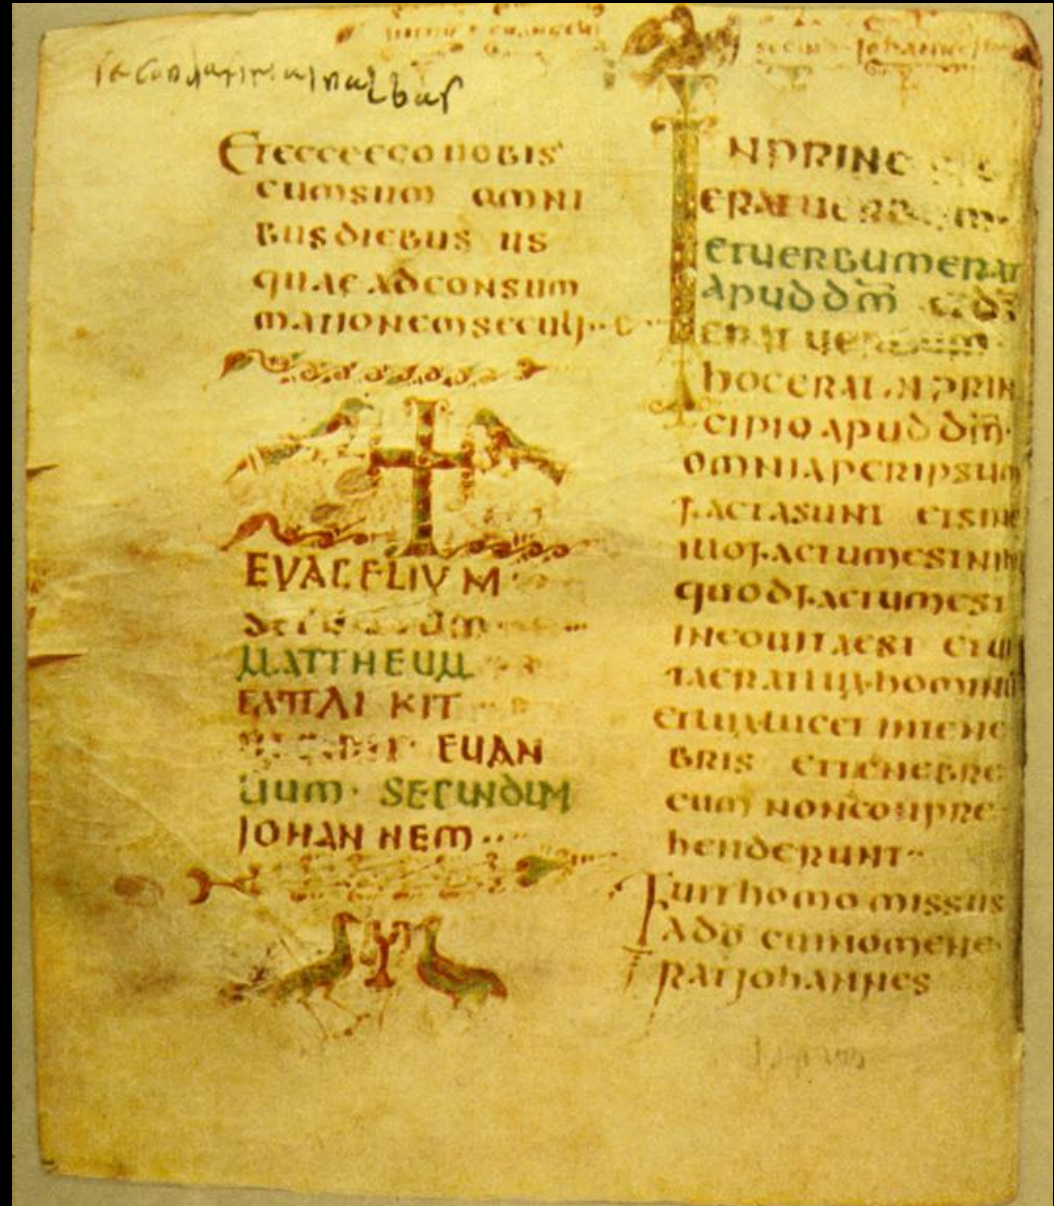 EVANGELI
SECUND JOHANNE
Et ecce eco uobis
cum sum omni
bus diebus us
quae ad consum
mationem seculi
EVACELIUM
MATTHEUM
EXPLI KIT
EUAN
LIUM SECUNDUM
JOHANNEM
IN PRINC
ERAT UERBUM
et uerbum erat
apud dm et ds
erat uerbum
hoc erat in prin
cipio apud dm
omnia per ipsum
facta sunt et sine
illo factum est nih
quod factum est
in eo uita est et ui
ta erat lux hominu
et lux lucet in tene
bris et tenebre
eum non conpre
henderunt
Fuit homo missus
a do cui nomen e
rat johannes